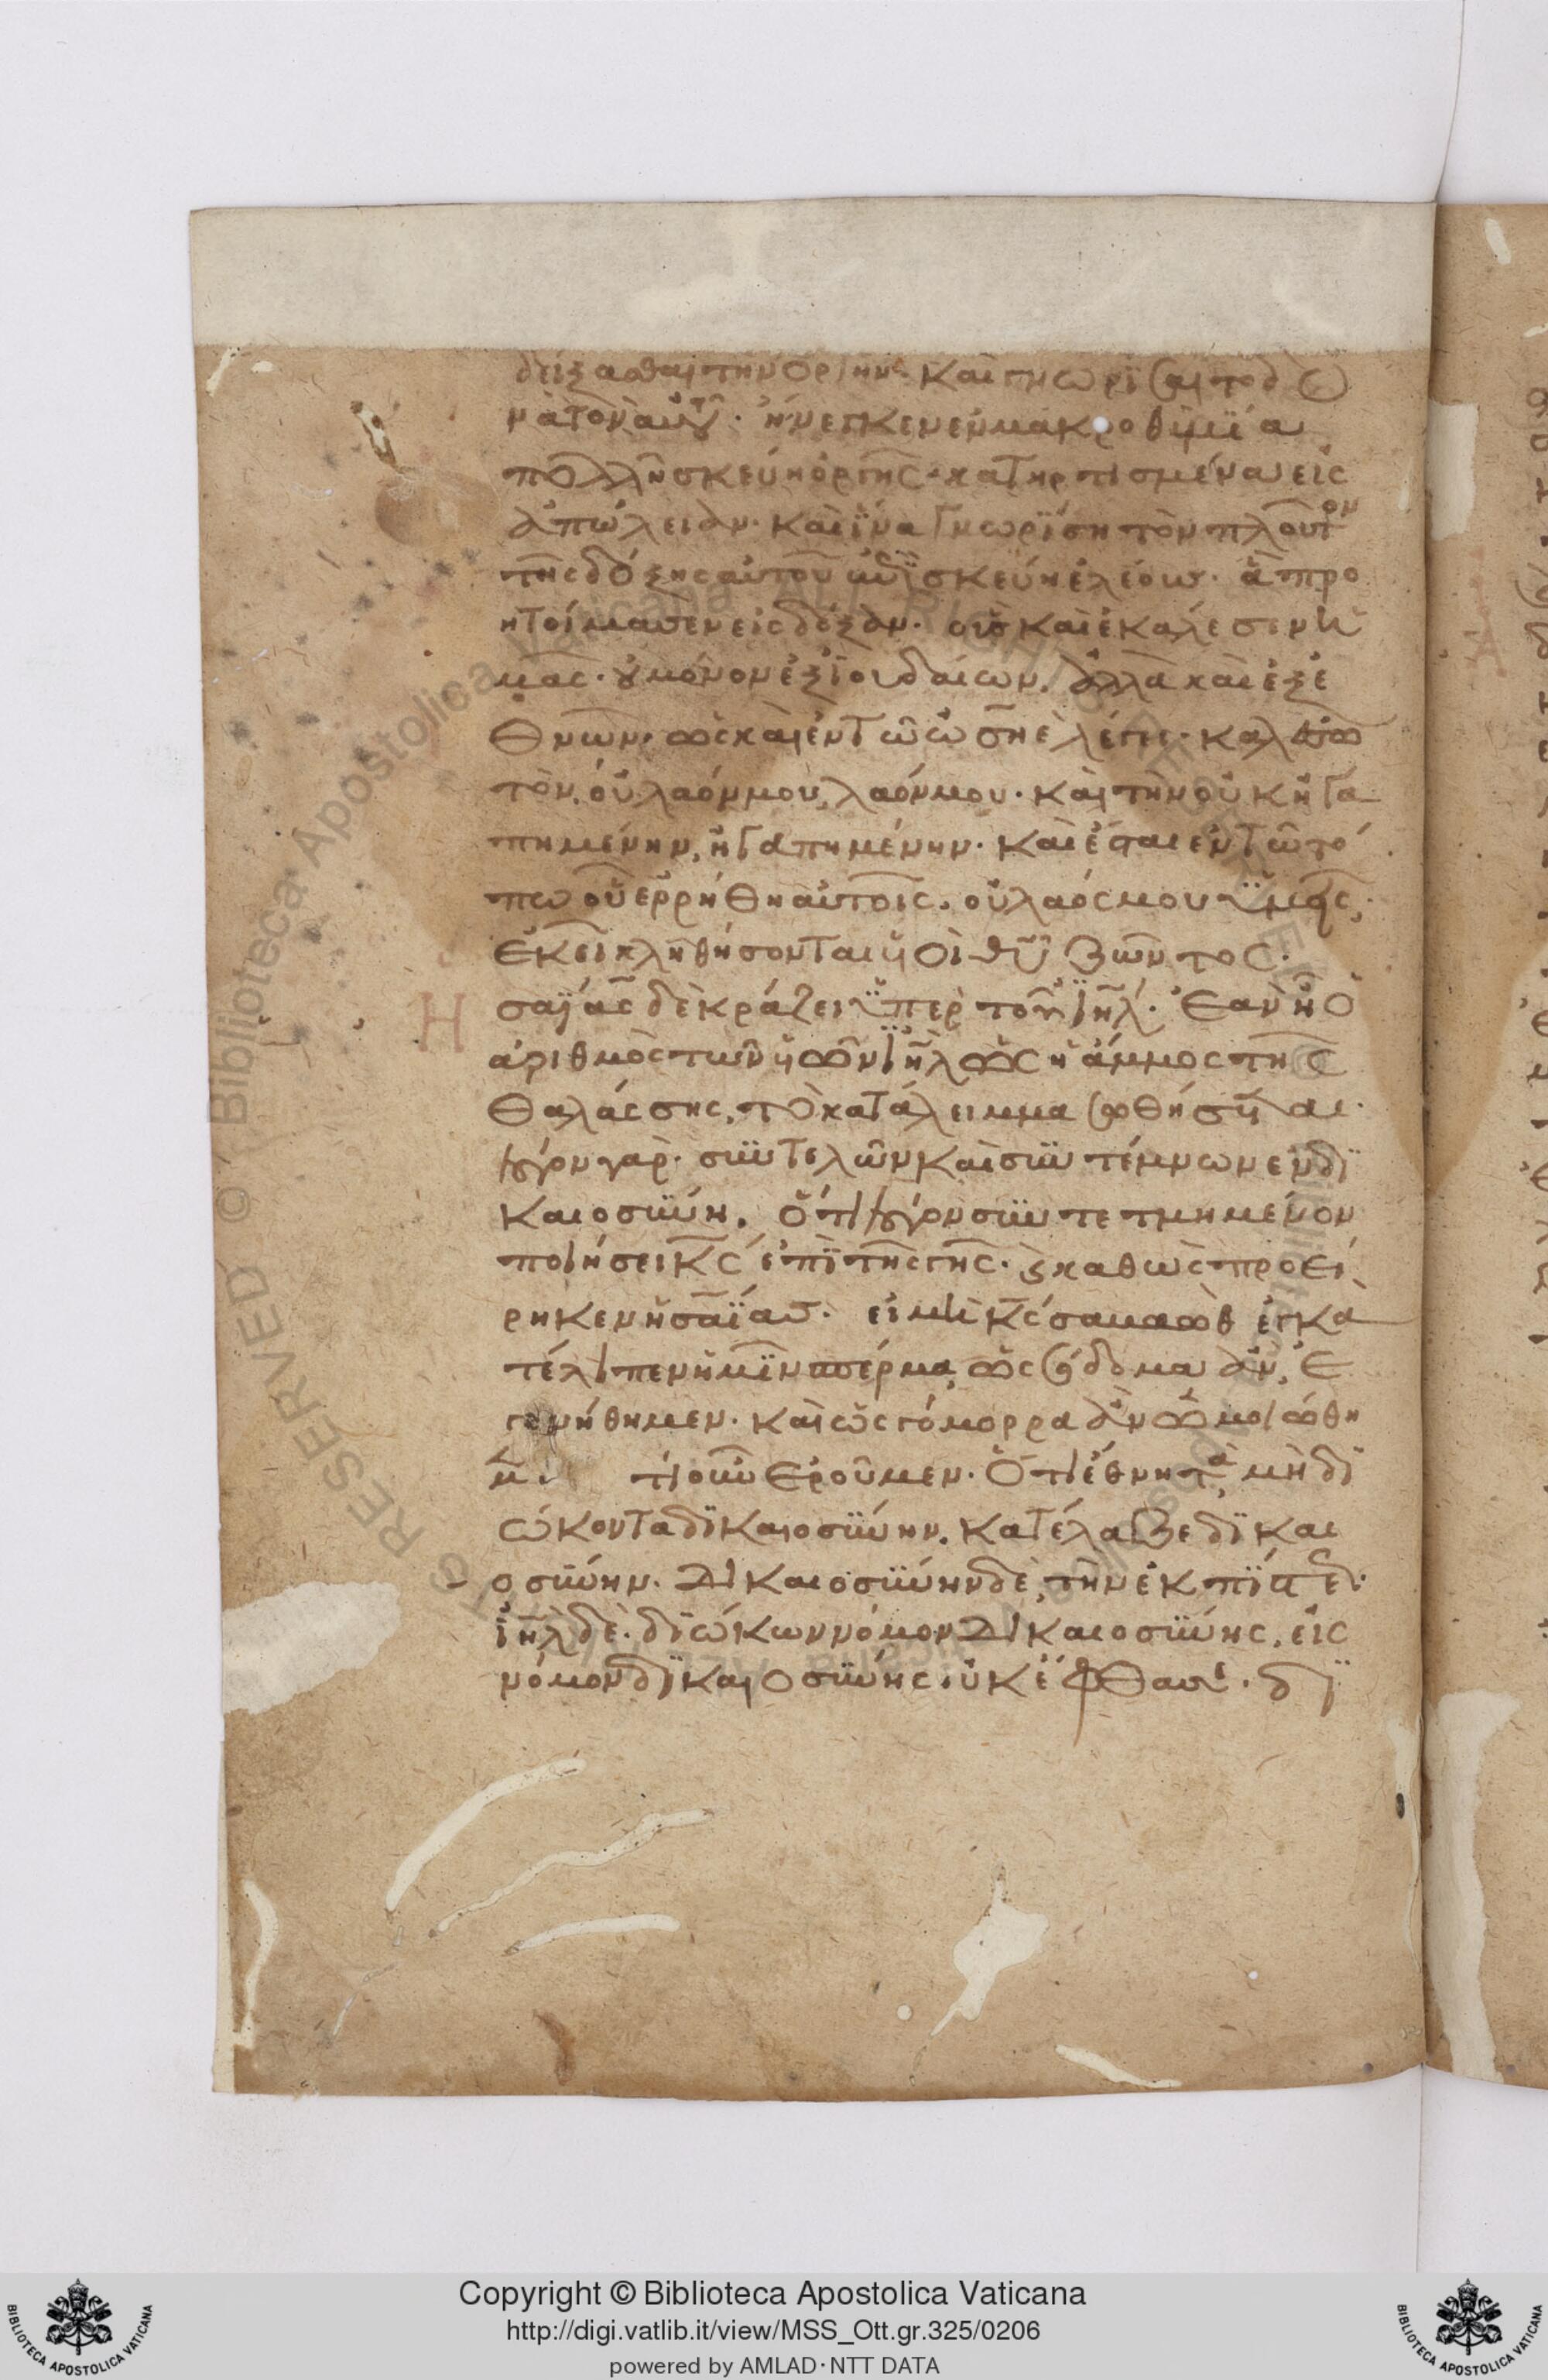 δείξασθαι τὴν ὀργὴν· καὶ γνωρίσαι τὸ δυ
νατὸν αὐτοῦ· ἤνεγκεν ἐν μακροθυμία
πολλῆ σκεύη ὀργῆς· κατηρτισμένα εἰς
ἀπώλειαν· καὶ ἵνα γνωρίση τὸν πλοῦτον
τῆς δόξης αὐτοῦ ἐπὶ σκεύη ἐλέους· ἃ προ
ητοίμασεν εἰς δόξαν· οὓς καὶ ἐκάλεσεν ἡ
μᾶς· οὐ μόνον ἐξ ἰουδαίων, ἀλλὰ καὶ ἐξ ἐ
θνῶν· ὡς καὶ ἐν τῶ ὡσηὲ λέγει· καλέσω
τὸν, οὐ λαόν μου, λαόν μου· καὶ τὴν οὐκ ἠγα
πημένην, ἠγαπημένην· καὶ ἔσται ἐν τῶ τό
πω οὗ ἐρρήθη αὐτοῖς, οὐ λαός μου ὑμεῖς,
ἐκεῖ κληθήσονται υἱοὶ θῦ ζῶντος·
Η σαΐας δὲ κράζει ὑπὲρ τοῦ ιηλ· Ἐὰν ἦ ὁ
ἀριθμὸς τῶν υἱῶν ιηλ ὡς ἡ ἄμμος τῆς
θαλάσσης, τὸ κατάλειμμα σωθήσεται·
λόγον γὰρ· συντελῶν καὶ συντέμνων ἐν δι
καιοσύνη, ὅτι λόγον συντετμημένον
ποιήσει κς ἐπὶ τῆς γῆς· καὶ καθὼς προεί
ρηκεν ἡσαΐας· εἰ μὴ κς σαβαὼθ ἐγκα
τέλιπεν ἡμῖν σπέρμα, ὡς σόδομα ἂν, ἐ
γενήθημεν· καὶ ὡς γόμορρα ἂν ὡμοιώθη
μεν· τί οὖν ἐροῦμεν· Ὅτι ἔθνη τὰ μὴ δι
ώκοντα δικαιοσύνην, κατέλαβε δικαι
οσύνην· Δικαιοσύνην δὲ, τὴν ἐκ πίστεως·
ιηλ δὲ· διώκων νόμον Δικαιοσύνης, εἰς
νόμον δικαιοσύνης οὐκ ἔφθασε· δι
Copyright © Biblioteca Apostolica Vaticana
http://digi.vatlib.it/view/MSS_Ott.gr.325/0206
powered by AMLAD·NTT DATA